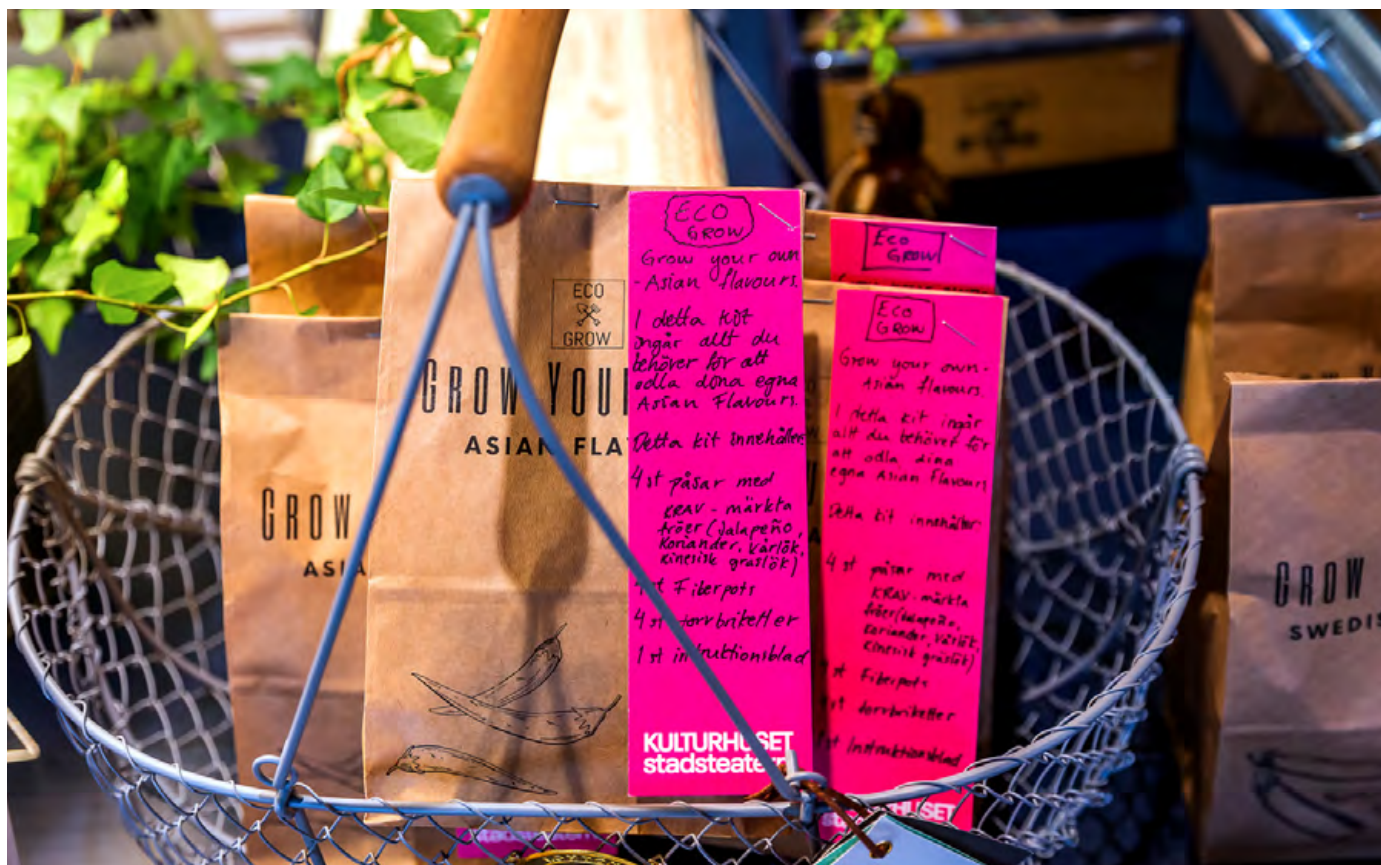 GROW
ASIA
ECO
GROW
GROW YOU
ASIAN FLA
ECO
GROW
Grow your own
-Asian flavours.
I detta kit
ingår allt du
behöver för att
odla dina egna
Asian Flavours.
Detta kit innehåller:
4 st påsar med
KRAV-märkta
fröer (Jalapeño,
Koriander, Vårlök,
Kinesisk gräslök)
st Fiberpots
4 st torvbriketter
1 st instruktionsblad
KULTURHUSET
stadsteatern
ECO
GROW
ECO
GROW
Grow your own-
Asian flavours.
I detta kit ingår
allt du behöver för
att odla dina
egna Asian Flavours
Detta kit innehåller
4 st påsar med
KRAV-märkta
fröer (Jalapeño,
Koriander, Vårlök,
Kinesisk gräslök)
st Fiberpots
st torvbriketter
st Instruktionsblad
GROW
SWEDIS